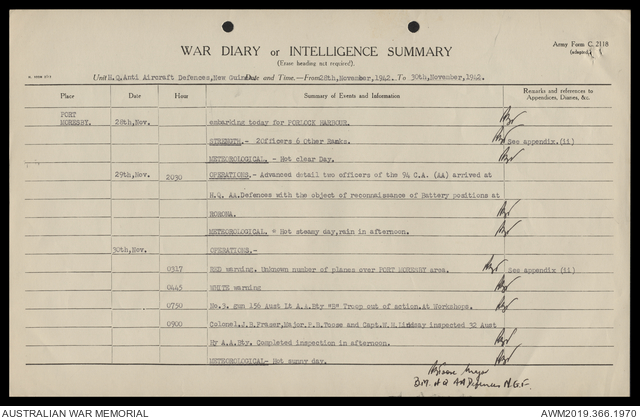 Army Form C. 2118
(adapted)
WAR DIARY or INTELLIGENCE SUMMARY
(Erase heading not required).
Unit H.Q. Anti Aircraft Defences, New Guinea Date and Time.—From 28th, November, 1942. To 30th, November, 1942.
Place Date Hour Summary of Events and Information Remarks and references to Appendices, Diaries, &c.
PORT MORESBY. 28th, Nov. embarking today for PORLOCK HARBOUR.
STRENGTH. - 2Officers 6 Other Ranks. See appendix.(ii)
METEOROLOGICAL. - Hot clear Day.
29th, Nov. 2030 OPERATIONS.- Advanced detail two officers of the 94 C.A. (AA) arrived at
H.Q. AA.Defences with the object of reconnaissance of Battery positions at
METEOROLOGICAL. - Hot steamy day, rain in afternoon.
30th, Nov. OPERATIONS.-
0317 RED warning. Unknown number of planes over PORT MORESBY area. See appendix (ii)
0445 WHITE warning
0750 No.3. gun 156 Aust Lt A.A.Bty "B" Troop out of action. At Workshops.
0900 Colonel.J.B.Fraser, Major.P.B.Toose and Capt.N.H.Lindsay inspected 32 Aust
Hy A.A.Bty. Completed inspection in afternoon.
METEOROLOGICAL- Hot sunny day.
Major
B.M. H Q AA Defences N.G.F.
AUSTRALIAN WAR MEMORIAL AWM2019.366.1970